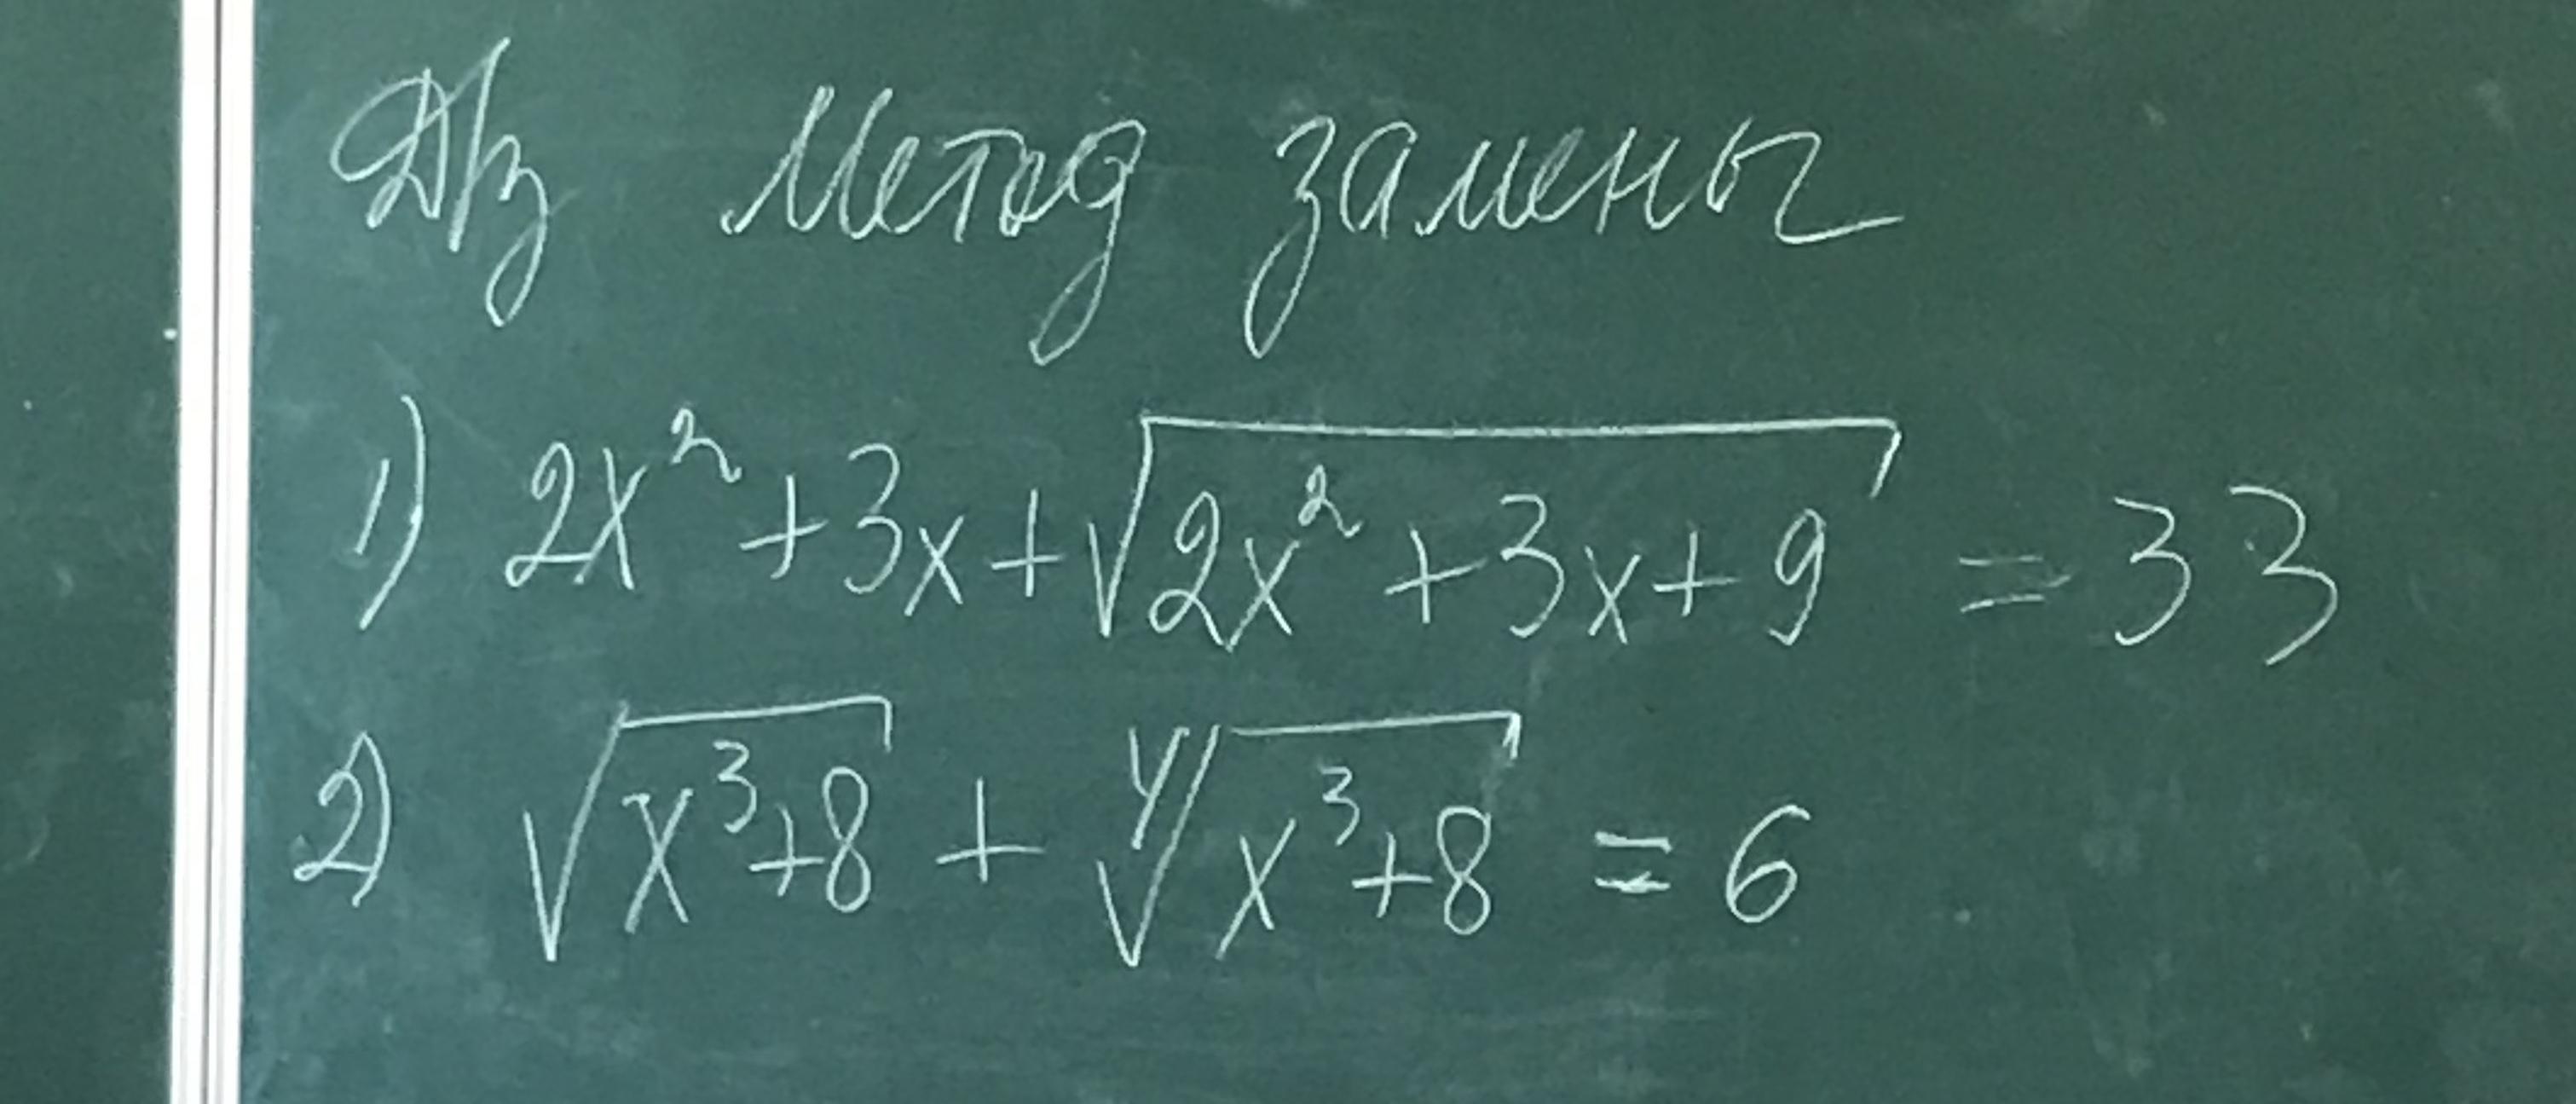 Д/з Метод замены
1) 2x² + 3x + √(2x² + 3x + 9) = 33
2) √(x³+8) + ⁴√(x³+8) = 6